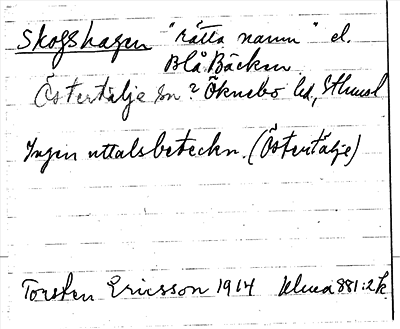 Skogshagen "rätta namn" el.
Blå Bäcken
Östertälje sn? Öknebo hd, Sthmsl
Ingen uttalsbeteckn. (Östertälje)
Torsten Ericsson 1914 Ulma 881:2k